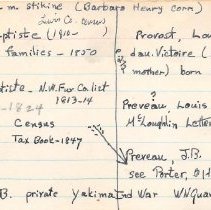 m. Stikine (Barbara Henry corr.)
Lewis Co. census
ptiste (1810-     )
Provost, Lou
families - 1850
dau. Victoire (
mother) born
tiste - N.W. Fur Co. list
1813-14
-1824
Preveau Louis
Census
McLoughlin Letter
Tax Book-1847
Preveau, J.B.
see Porter, OH
B. private Yakima Ind War WN Quar